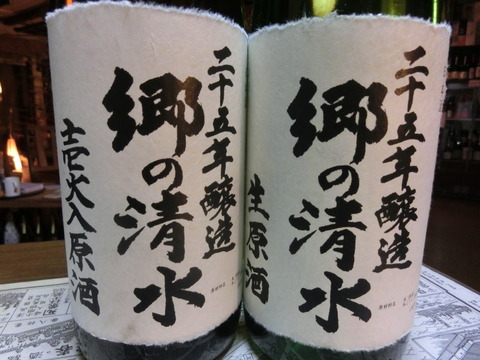 二十五年醸造
郷の清水
壱火入原酒
二十五年醸造
郷の清水
生原酒